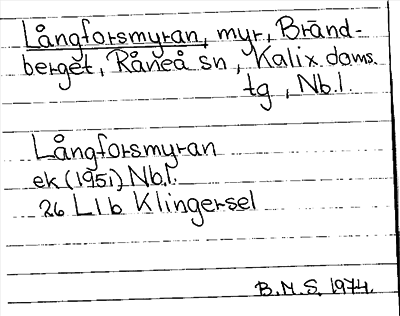 Långforsmyran, myr, Bränd-
berget, Råneå sn, Kalix doms.
tg, Nb.l.
Långforsmyran
ek (1951) Nb.l.
26 L1b Klingersel
B.M.S. 1974.